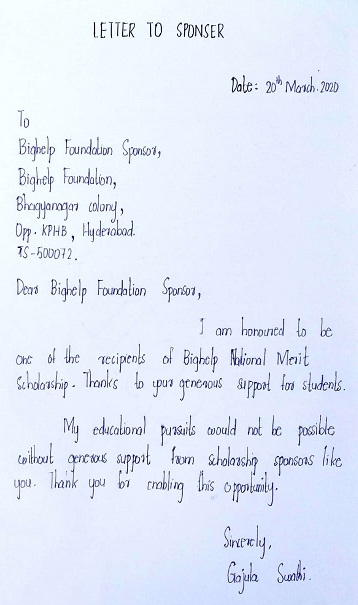 LETTER TO SPONSER
Date: 20th March. 2020
To
Bighelp Foundation Sponsor,
Bighelp Foundation,
Bhagyanagar colony,
Opp. KPHB, Hyderabad.
TS-500072.
Dear Bighelp Foundation Sponsor,
I am honoured to be
one of the recipients of Bighelp National Merit
Scholarship. Thanks to your generous support for students.
My educational pursuits would not be possible
without generous support from scholarship sponsors like
you. Thank you for enabling this opportunity.
Sincerely,
Gajula Swathi.